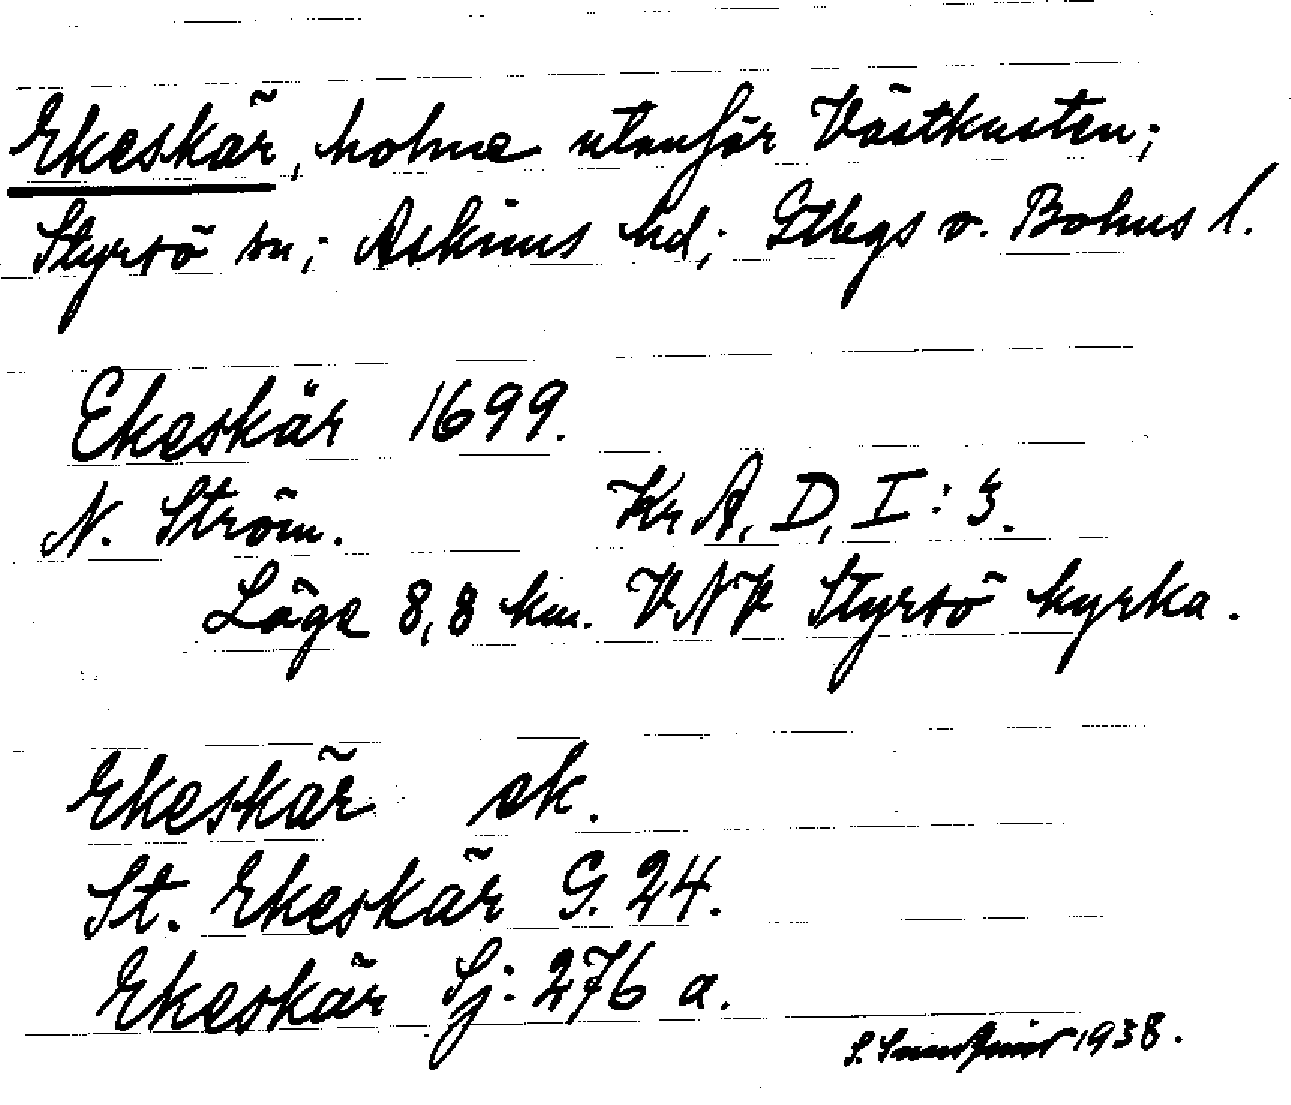 Ekeskär, holme utanför Västkusten;
Styrsö sn; Askims hd; Gtbgs o. Bohus l.
Ekeskär 1699.
N. Ström. Kr A, D, I: 3.
Läge 8,8 km. VNV Styrsö kyrka.
Ekeskär ek.
St. Ekeskär G. 24.
Ekeskär Sj: 276 a.
S. 1938.